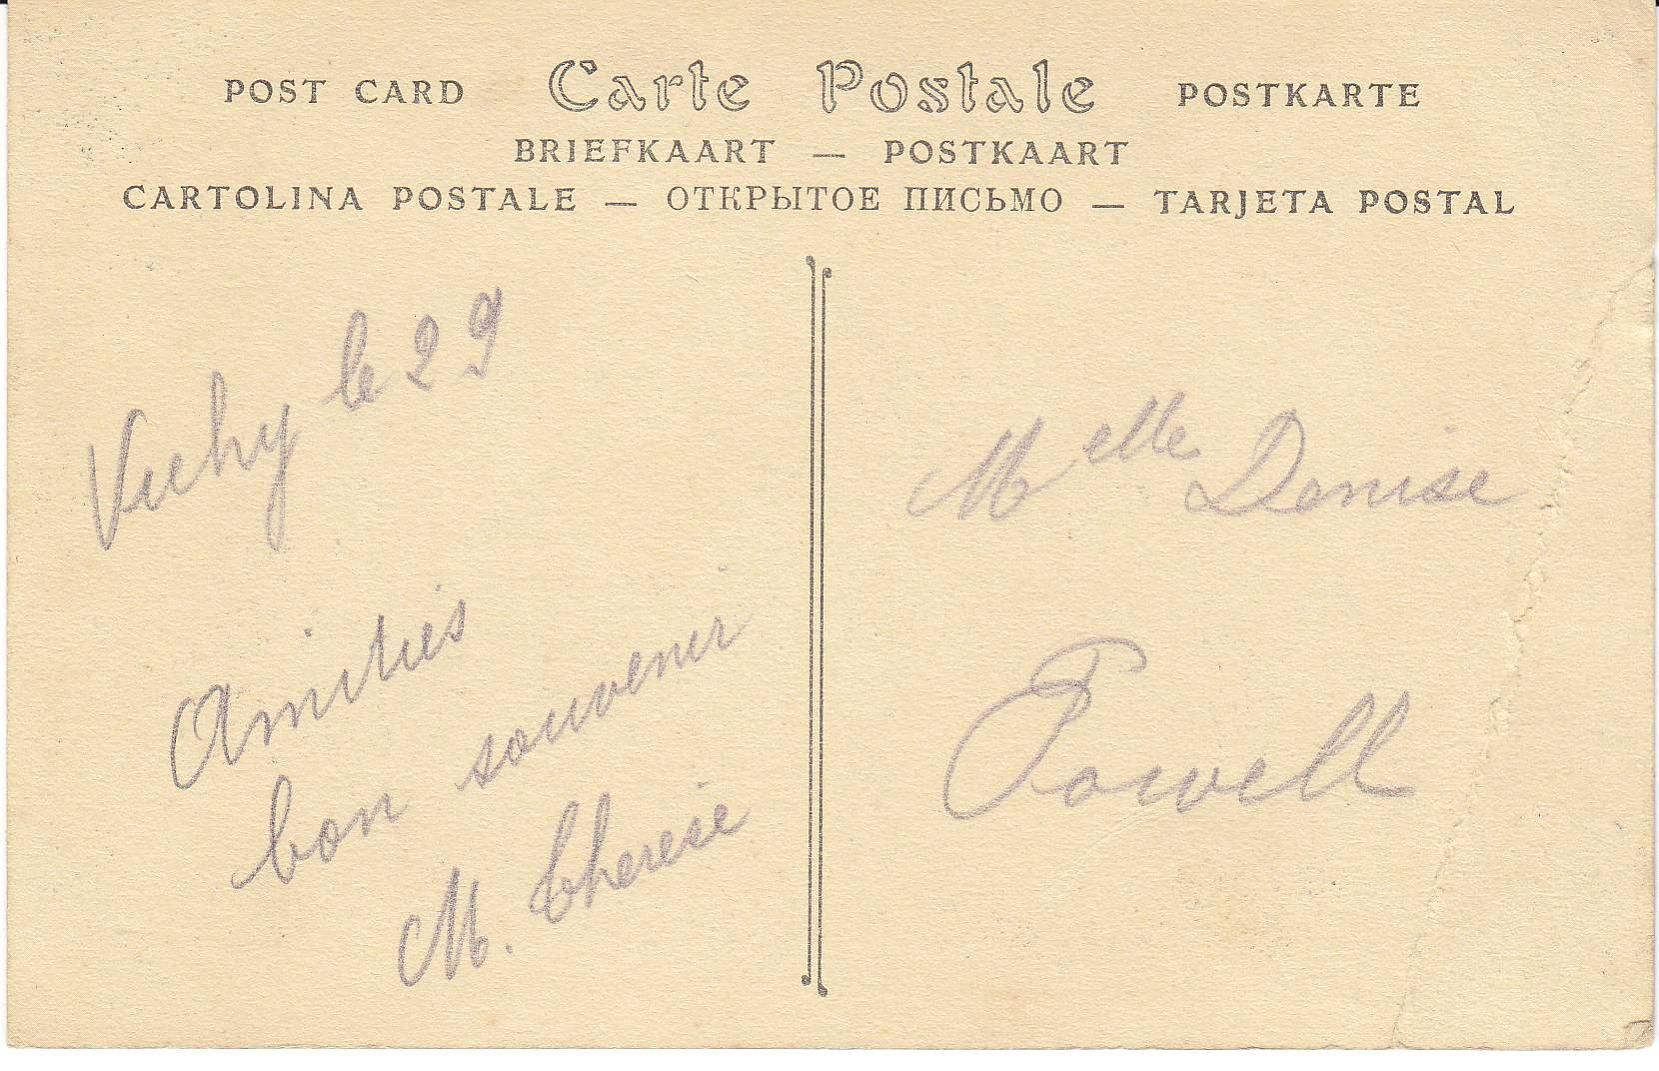 POST CARD Carte Postale POSTKARTE
BRIEFKAART — POSTKAART
CARTOLINA POSTALE — ОТКРЫТОЕ ПИСЬМО — TARJETA POSTAL
Vichy le 29
Amitiés
bon souvenir
M. Therese
Melle Denise
Powell